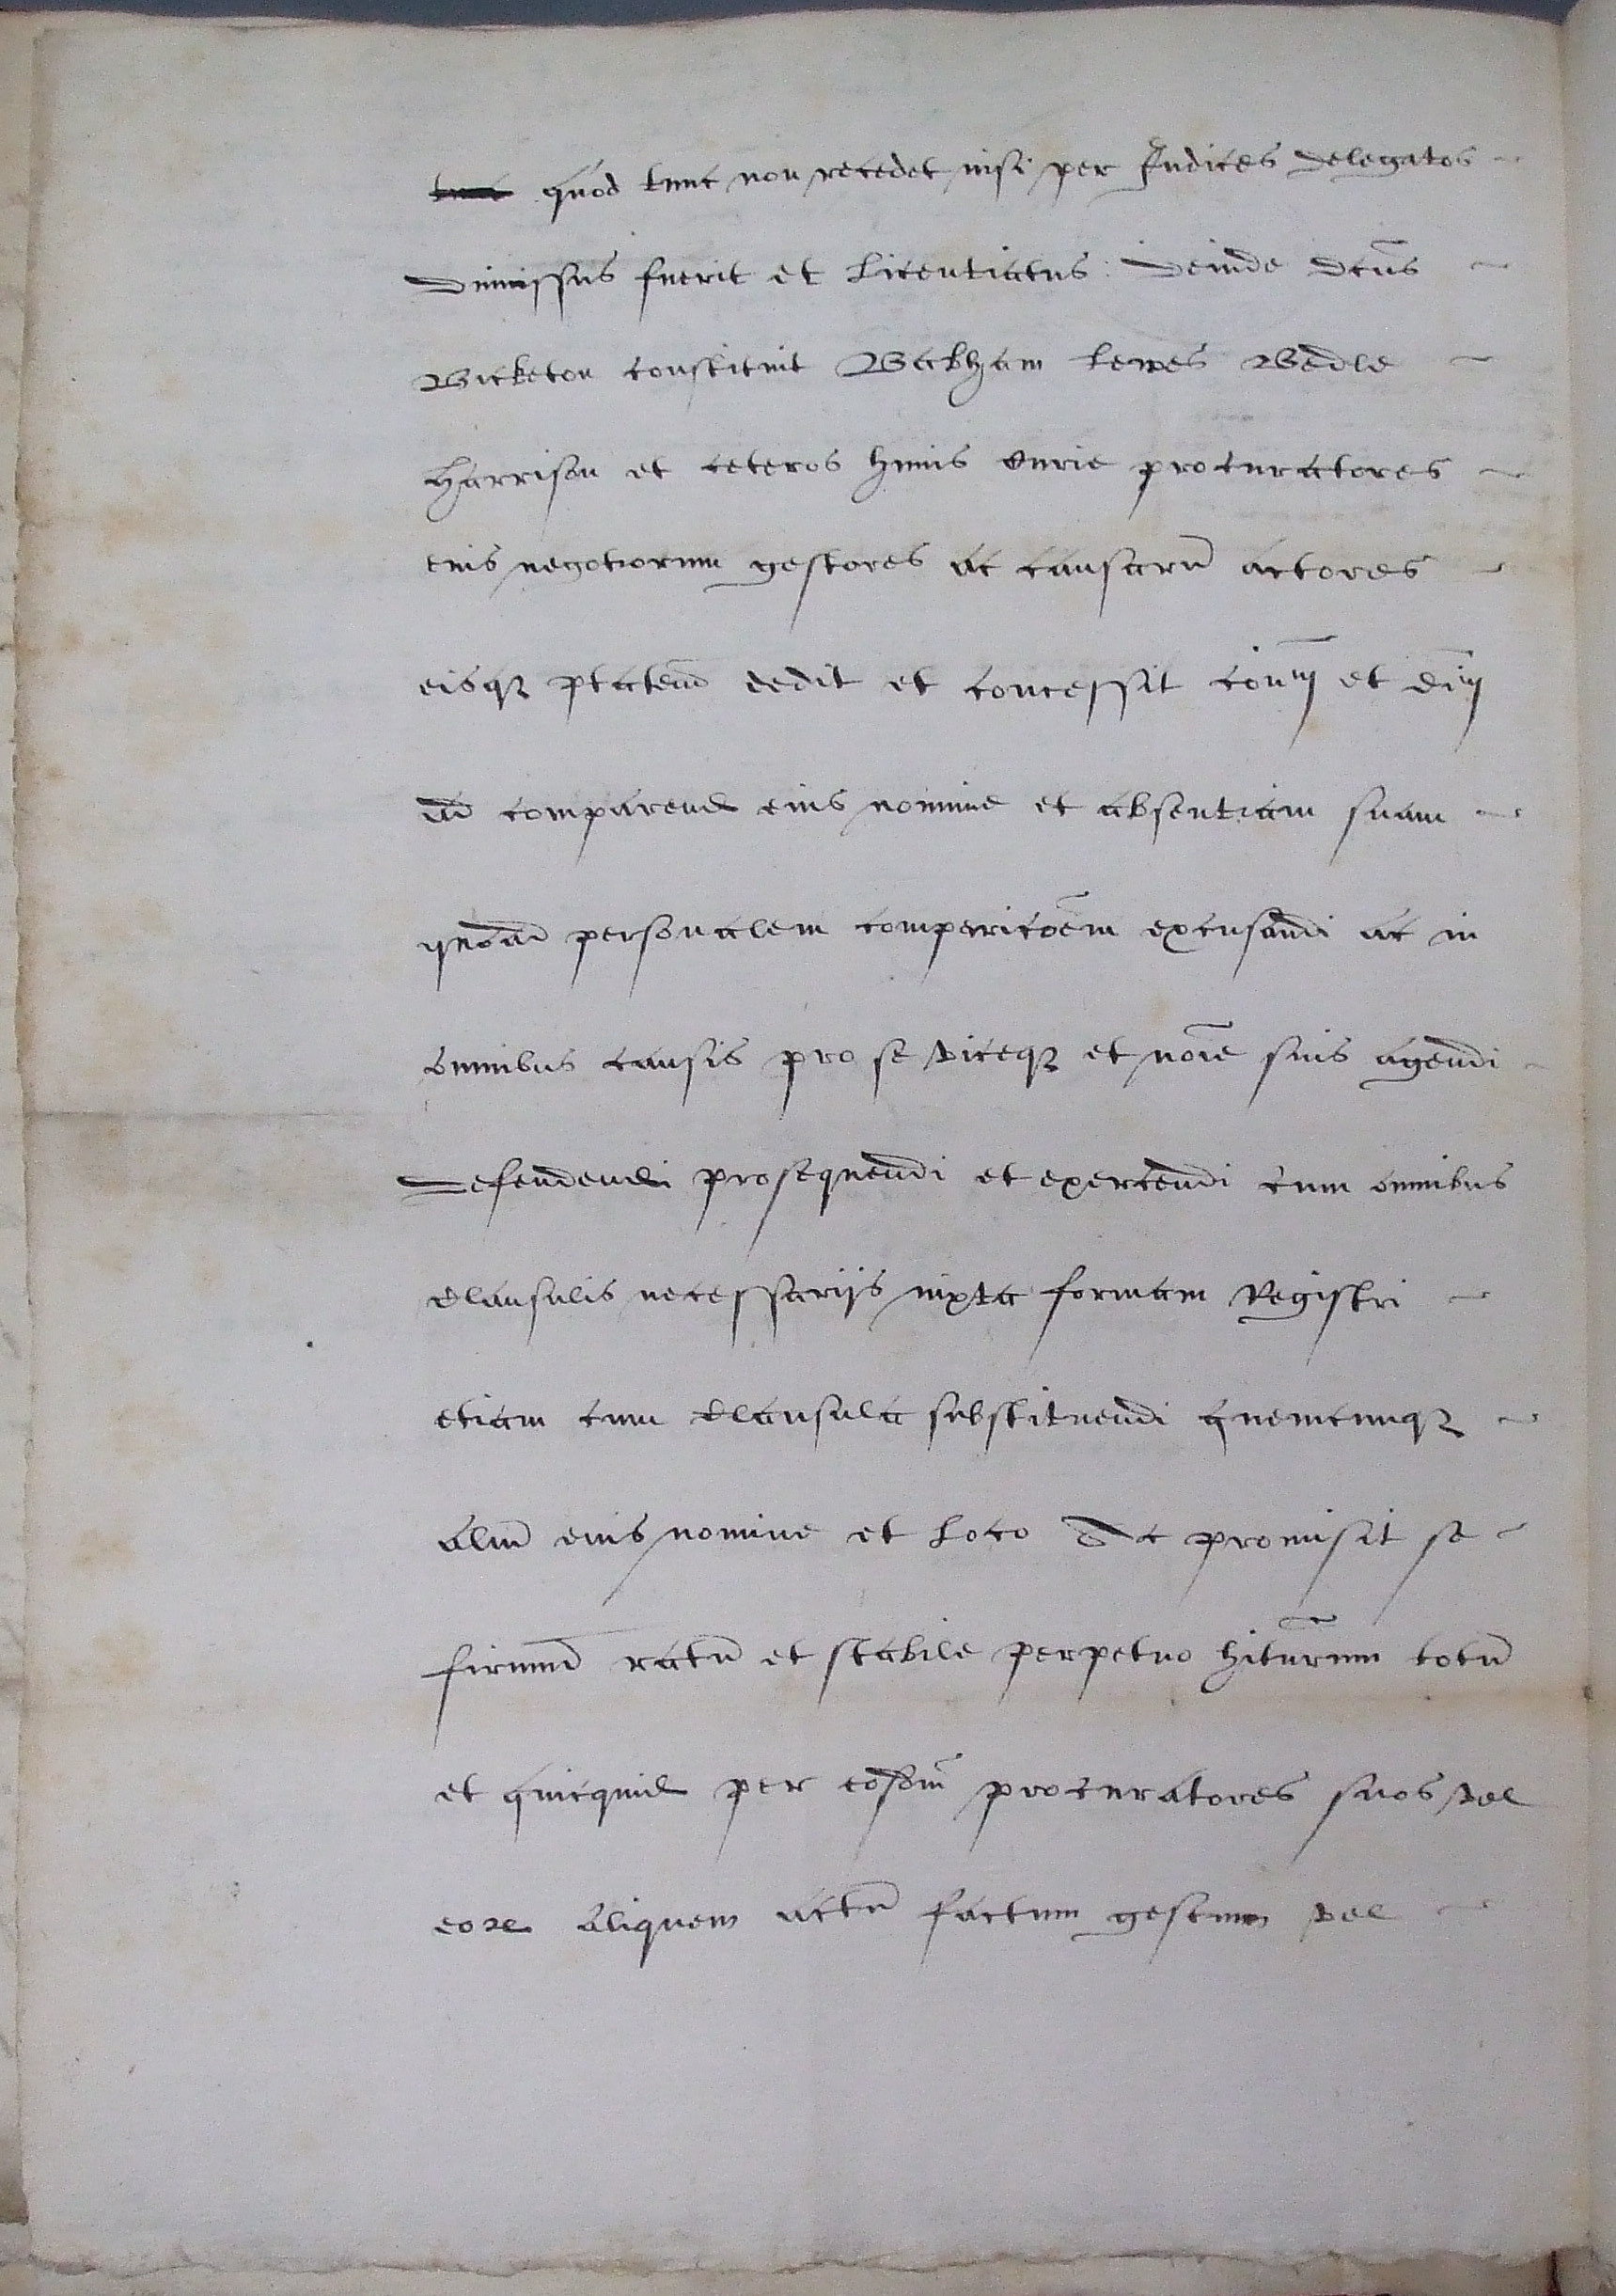 quod tunc non recedet nisi per Iudices delegatos
dimissus fuerit et licentiatus: deinde dcũs
Bicketon constituit Wabham Lewes Bedle
Harrison et ceteros huius Curie procuratores
eius negotiorum gestores ac causarũ actores
eisqꝫ ptatem̃ dedit et concessit coñm et diĩm
ad comparend eius nomine et absentiam suam
quoad personalem comparicõem excusandi ac in
omnibus causis pro se viceqꝫ et noĩe suis agendi
defendendi prosequendi et exercendi cum omnibus
Clausulis necessarijs iuxta formam Registri
etiam cum Clausula substituendi quemcunqꝫ
aliũ eius nomine et loco Ac promisit se
firmũ ratũ et stabile perpetuo hitũrum totũ
et quicquid per eosdm̃ procuratores suos vel
eoꝝ aliquem actũ factum gestum vel